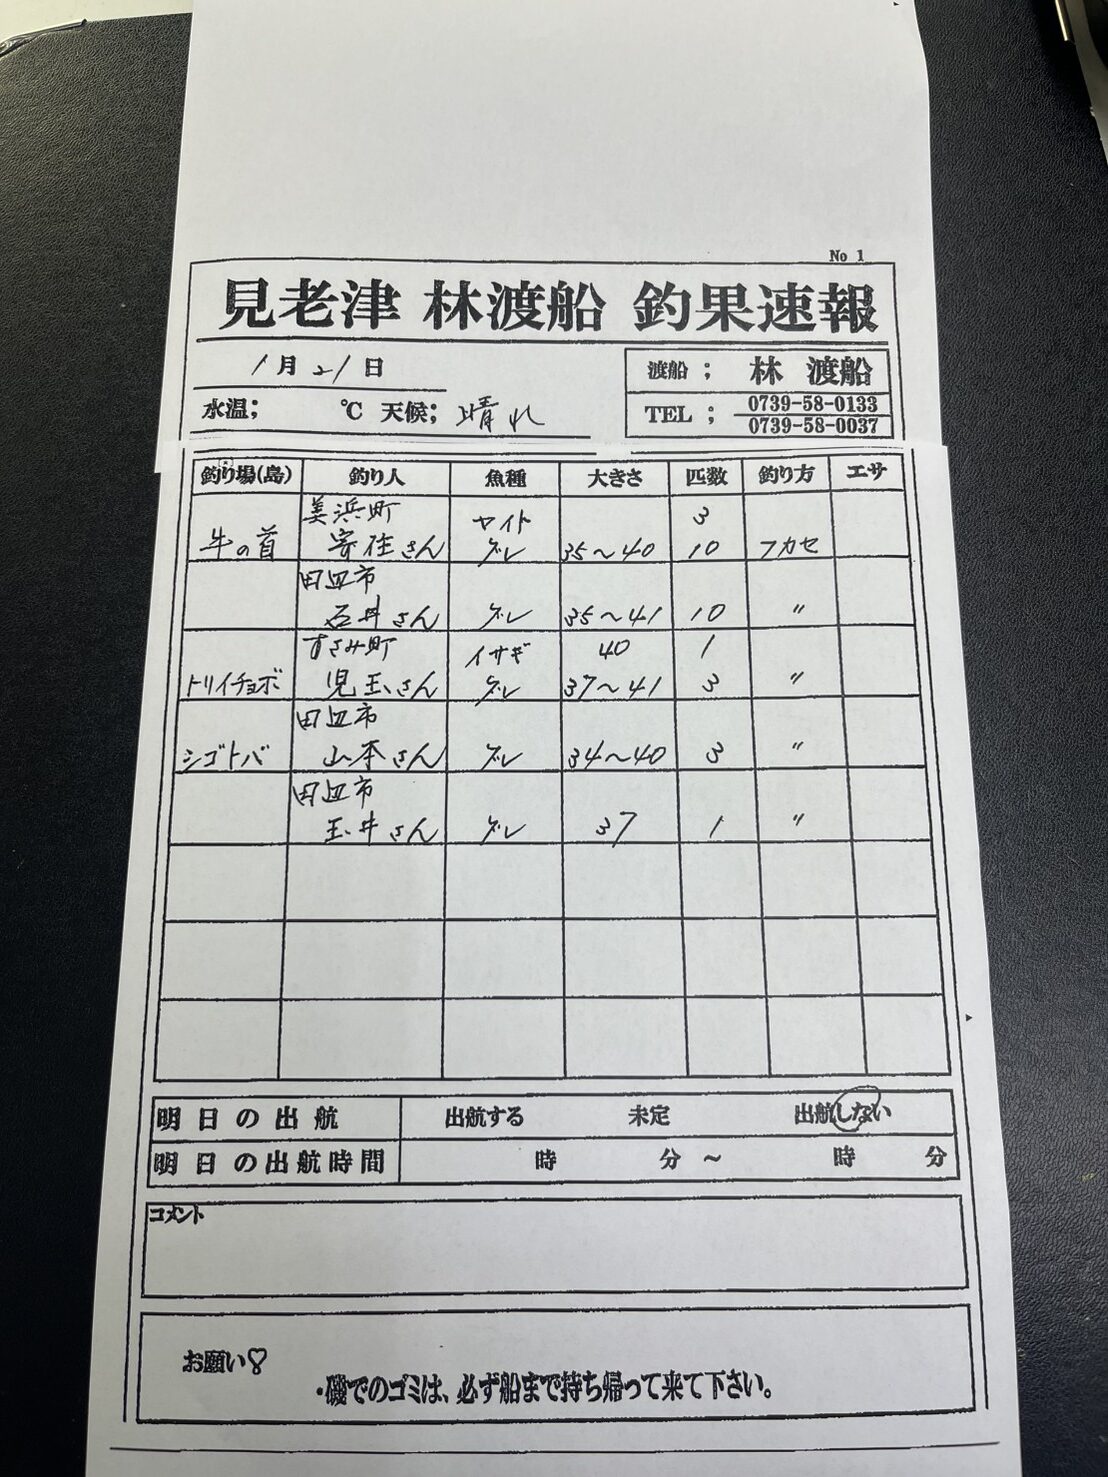 No 1
見老津 林渡船 釣果速報
1月21日
渡船; 林 渡船
水温; ℃ 天候; 晴れ
TEL; 0739-58-0133
0739-58-0037
釣り場(島) 釣り人 魚種 大きさ 匹数 釣り方 エサ
美浜町 ヤイト 3
牛の首 寄住さん グレ 35〜40 10 フカセ
田辺市
石井さん グレ 35〜41 10 〃
すさみ町 イサギ 40 1
トリイチョボ 児玉さん グレ 37〜41 3 〃
田辺市
シゴトバ 山本さん グレ 34〜40 3 〃
田辺市
玉井さん グレ 37 1 〃
明日の出航 出航する 未定 出航しない
明日の出航時間 時 分 〜 時 分
コメント
お願い♡
・磯でのゴミは、必ず船まで持ち帰って来て下さい。